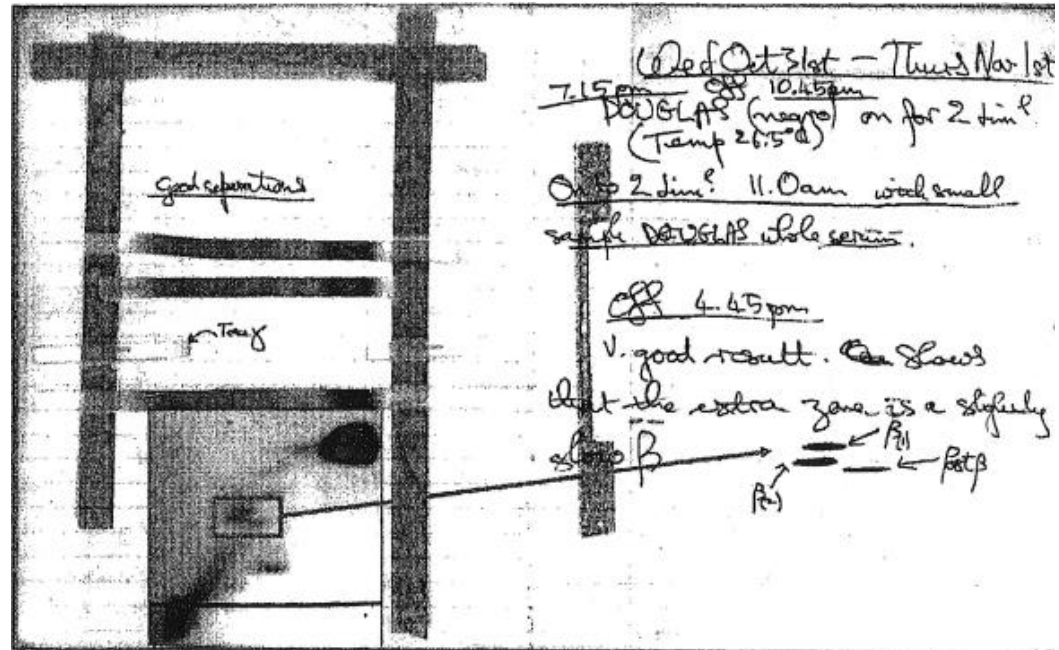 good seperations
Tray
Wed Oct 31st – Thurs Nov 1st
7.15pm Off 10.45pm
DOUGLAS (negro) on for 2 dim?
(Temp 26.5°C)
Onto 2 dim? 11.0am with small
sample DOUGLAS whole serum.
Off 4.45pm
V. good result. Shows
that the extra zone is a slightly
slow β
β(1)
β(2)
post β